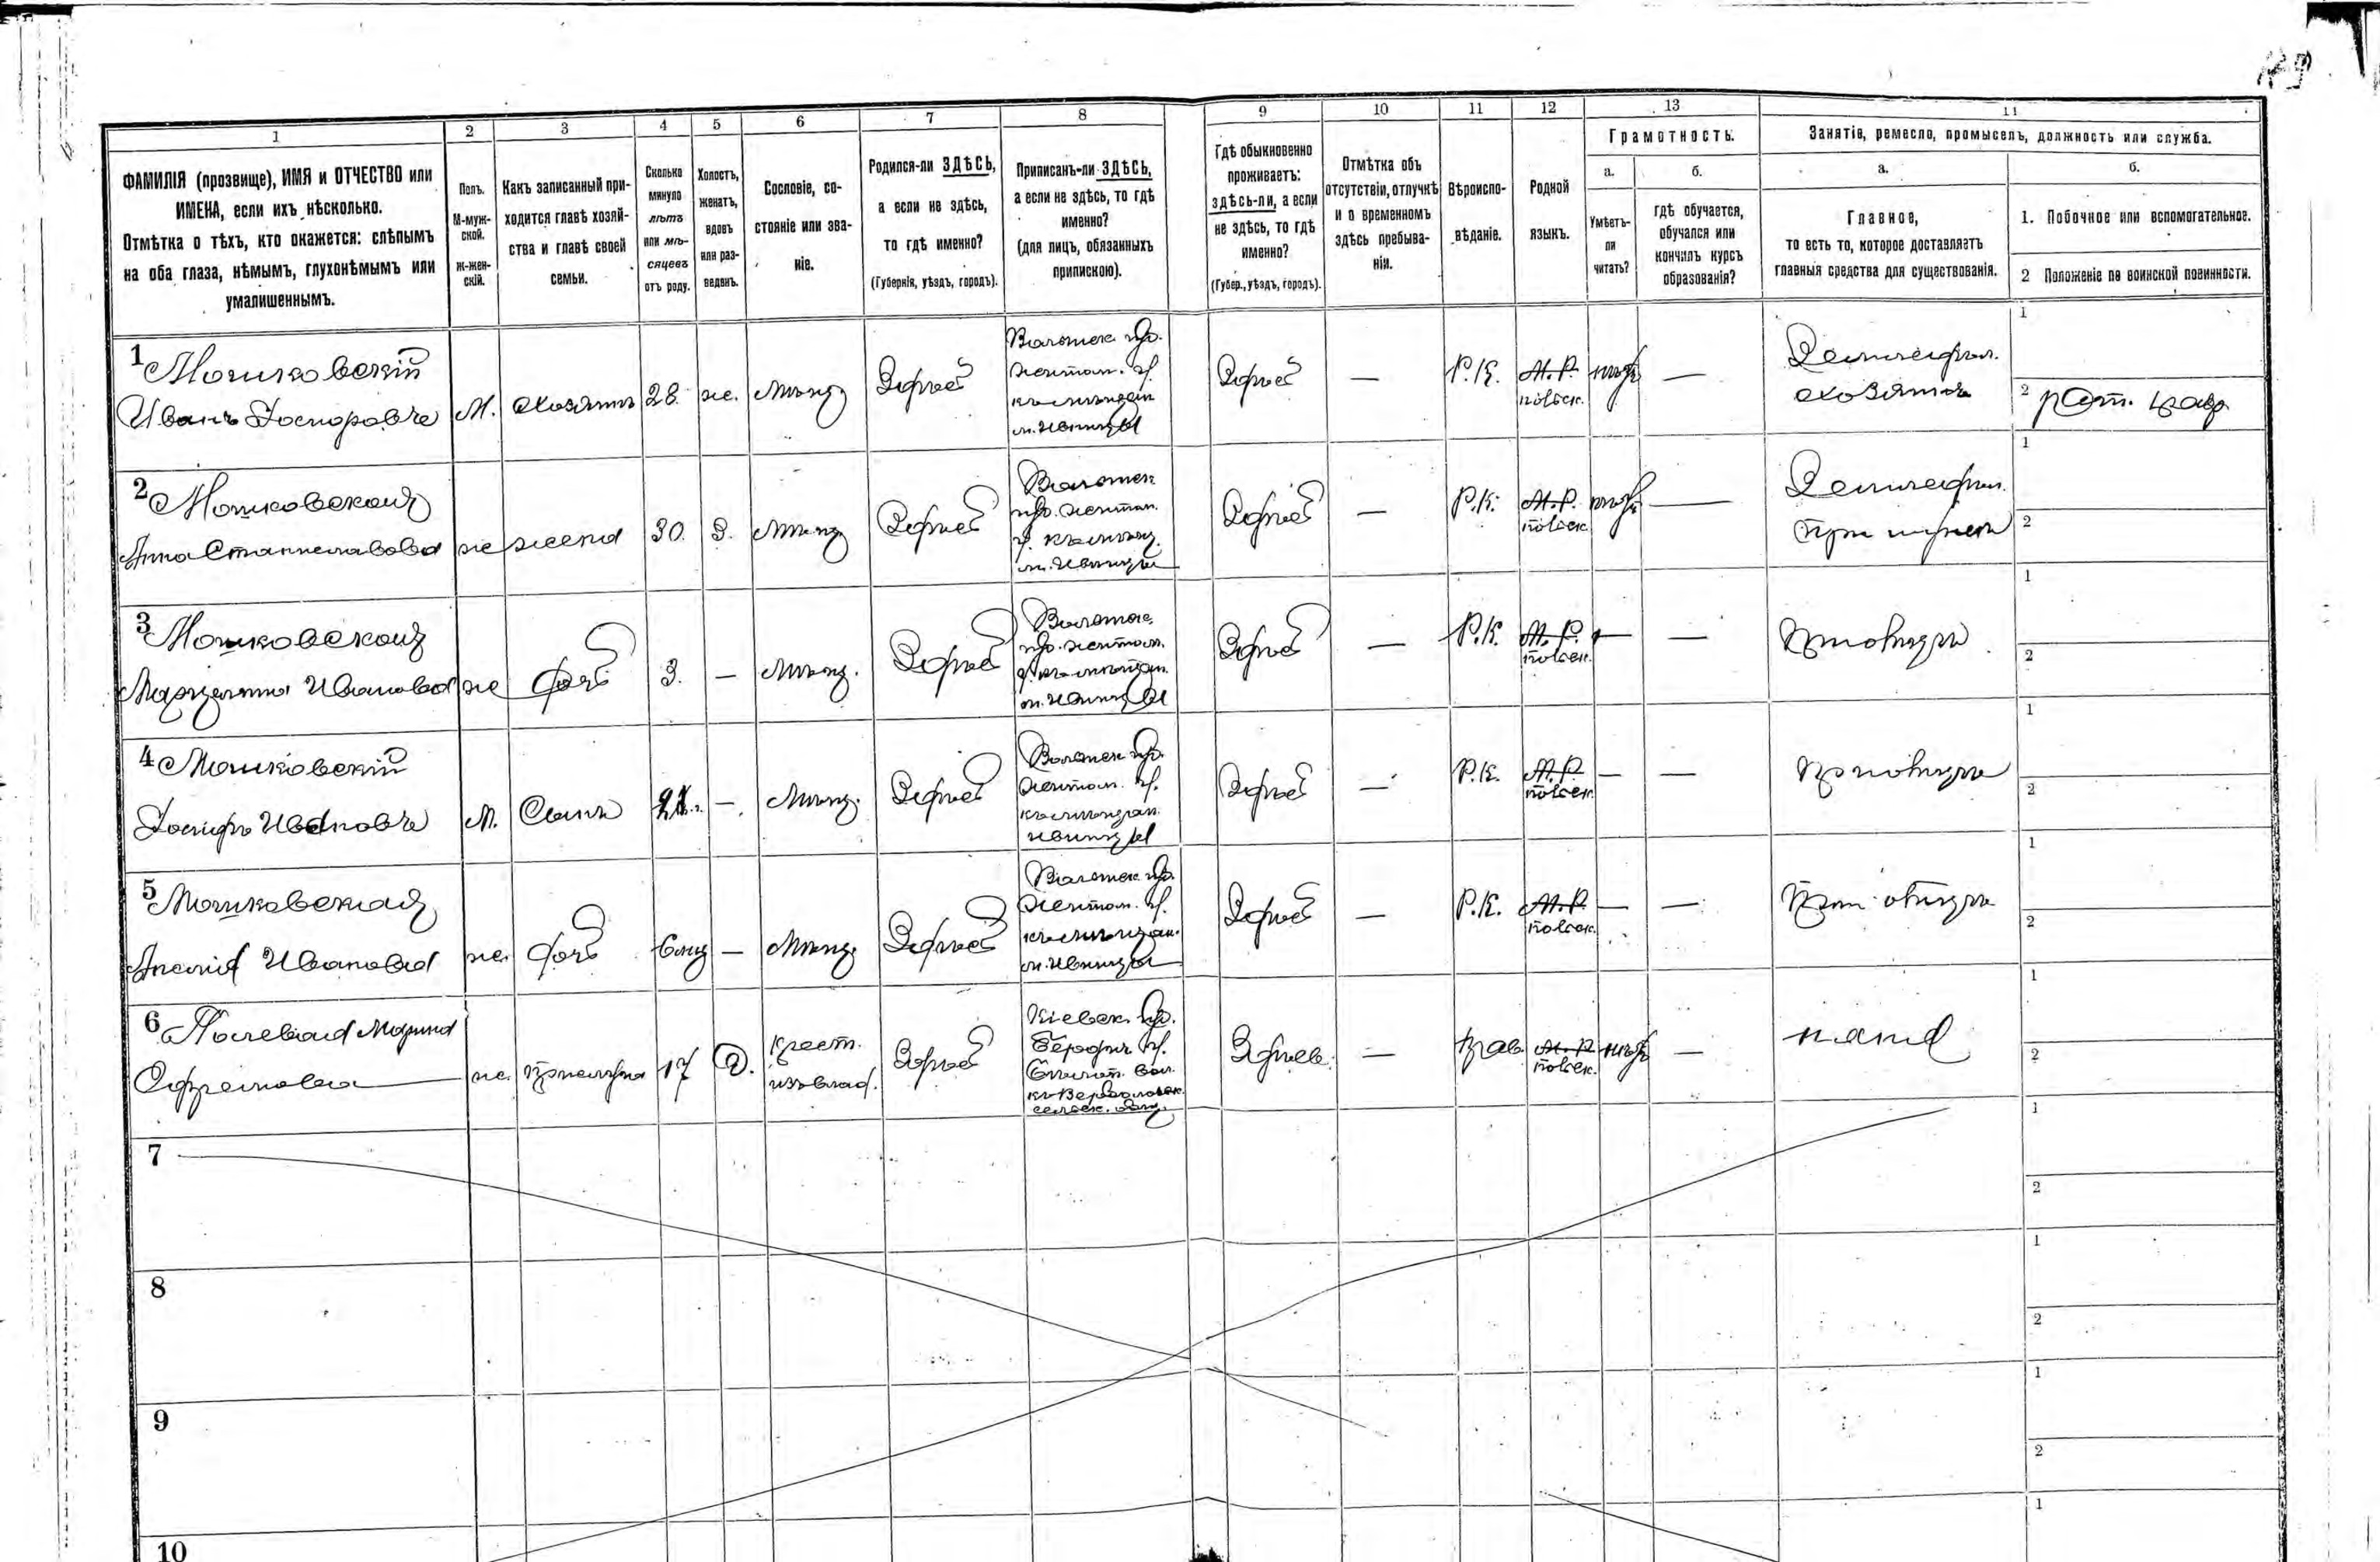 1
2
3
4
5
6
7
8
9
10
11
12
13
11
ФАМИЛІЯ (прозвище), ИМЯ и ОТЧЕСТВО или
ИМЕНА, если ихъ нѣсколько.
Отмѣтка о тѣхъ, кто окажется: слѣпымъ
на оба глаза, нѣмымъ, глухонѣмымъ или
умалишеннымъ.
Полъ.
М-муж-
ской.
Ж-жен-
скій.
Какъ записанный при-
ходится главѣ хозяй-
ства и главѣ своей
семьи.
Сколько
минуло
лѣтъ
или мѣ-
сяцевъ
отъ роду.
Холостъ,
женатъ,
вдовъ
или раз-
веденъ.
Сословіе, со-
стояніе или зва-
ніе.
Родился-ли ЗДѢСЬ,
а если не здѣсь,
то гдѣ именно?
(Губернія, уѣздъ, городъ).
Приписанъ-ли ЗДѢСЬ,
а если не здѣсь, то гдѣ
именно?
(для лицъ, обязанныхъ
припискою).
Гдѣ обыкновенно
проживаетъ:
здѣсь-ли, а если
не здѣсь, то гдѣ
именно?
(Губер., уѣздъ, городъ).
Отмѣтка объ
отсутствіи, отлучкѣ
и о временномъ
здѣсь пребыва-
ніи.
Вѣроиспо-
вѣданіе.
Родной
языкъ.
Грамотность.
а.
б.
Умѣетъ-
ли
читать?
гдѣ обучается,
обучался или
кончилъ курсъ
образованія?
Занятіе, ремесло, промыселъ, должность или служба.
а.
б.
Главное,
то есть то, которое доставляетъ
главныя средства для существованія.
1. Побочное или вспомогательное.
2 Положеніе по воинской повинности.
1 Мошковскій
Иванъ Іосифовъ
М.
хозяинъ
28.
ж.
мѣщ.
Здѣсь
Волынск. губ.
Житом. у.
къ мѣщан.
м. Ивницы
Здѣсь
—
Р.К.
М.Р.
польск.
нѣтъ
—
Земледѣл.
хозяинъ
1
2
2 Мошковская
Анна Станиславова
ж
жена
30.
З.
мѣщ.
Здѣсь
Волынск.
губ. Житом.
у. къ мѣщ.
м. Ивницы
Здѣсь
—
Р.К.
М.Р.
польск.
нѣтъ
—
Земледѣл.
при мужѣ
1
2
3 Мошковская
Марцелина Иванова
ж
дочь
3.
—
мѣщ.
Здѣсь
Волынск.
губ. Житом.
у. къ мѣщан.
м. Ивницы
Здѣсь
—
Р.К.
М.Р.
польск.
—
—
При отцѣ
1
2
4 Мошковскій
Іосифъ Ивановъ
М.
Сынъ
—.
мѣщ.
Здѣсь
Волынск. губ.
Житом. у.
къ мѣщан.
Ивницы
Здѣсь
—
Р.К.
М.Р.
польск.
—
—
При отцѣ
1
2
5 Мошковская
Анелія Иванова
ж.
дочь
6 мц
—
мѣщ.
Здѣсь
Волынск. губ.
Житом. у.
къ мѣщан.
м. Ивницы
Здѣсь
—
Р.К.
М.Р.
польск.
—
—
При отцѣ
1
2
6 Марина
ж.
прислуга
17
Д.
крест.
изъ влад.
Здѣсь
Кіевск. губ.
Бердич. у.
вол.
сельск. общ.
Здѣсь
—
Прав.
М.Р.
польск.
нѣтъ
—
няня
1
2
7
1
2
8
1
2
9
1
2
10
1